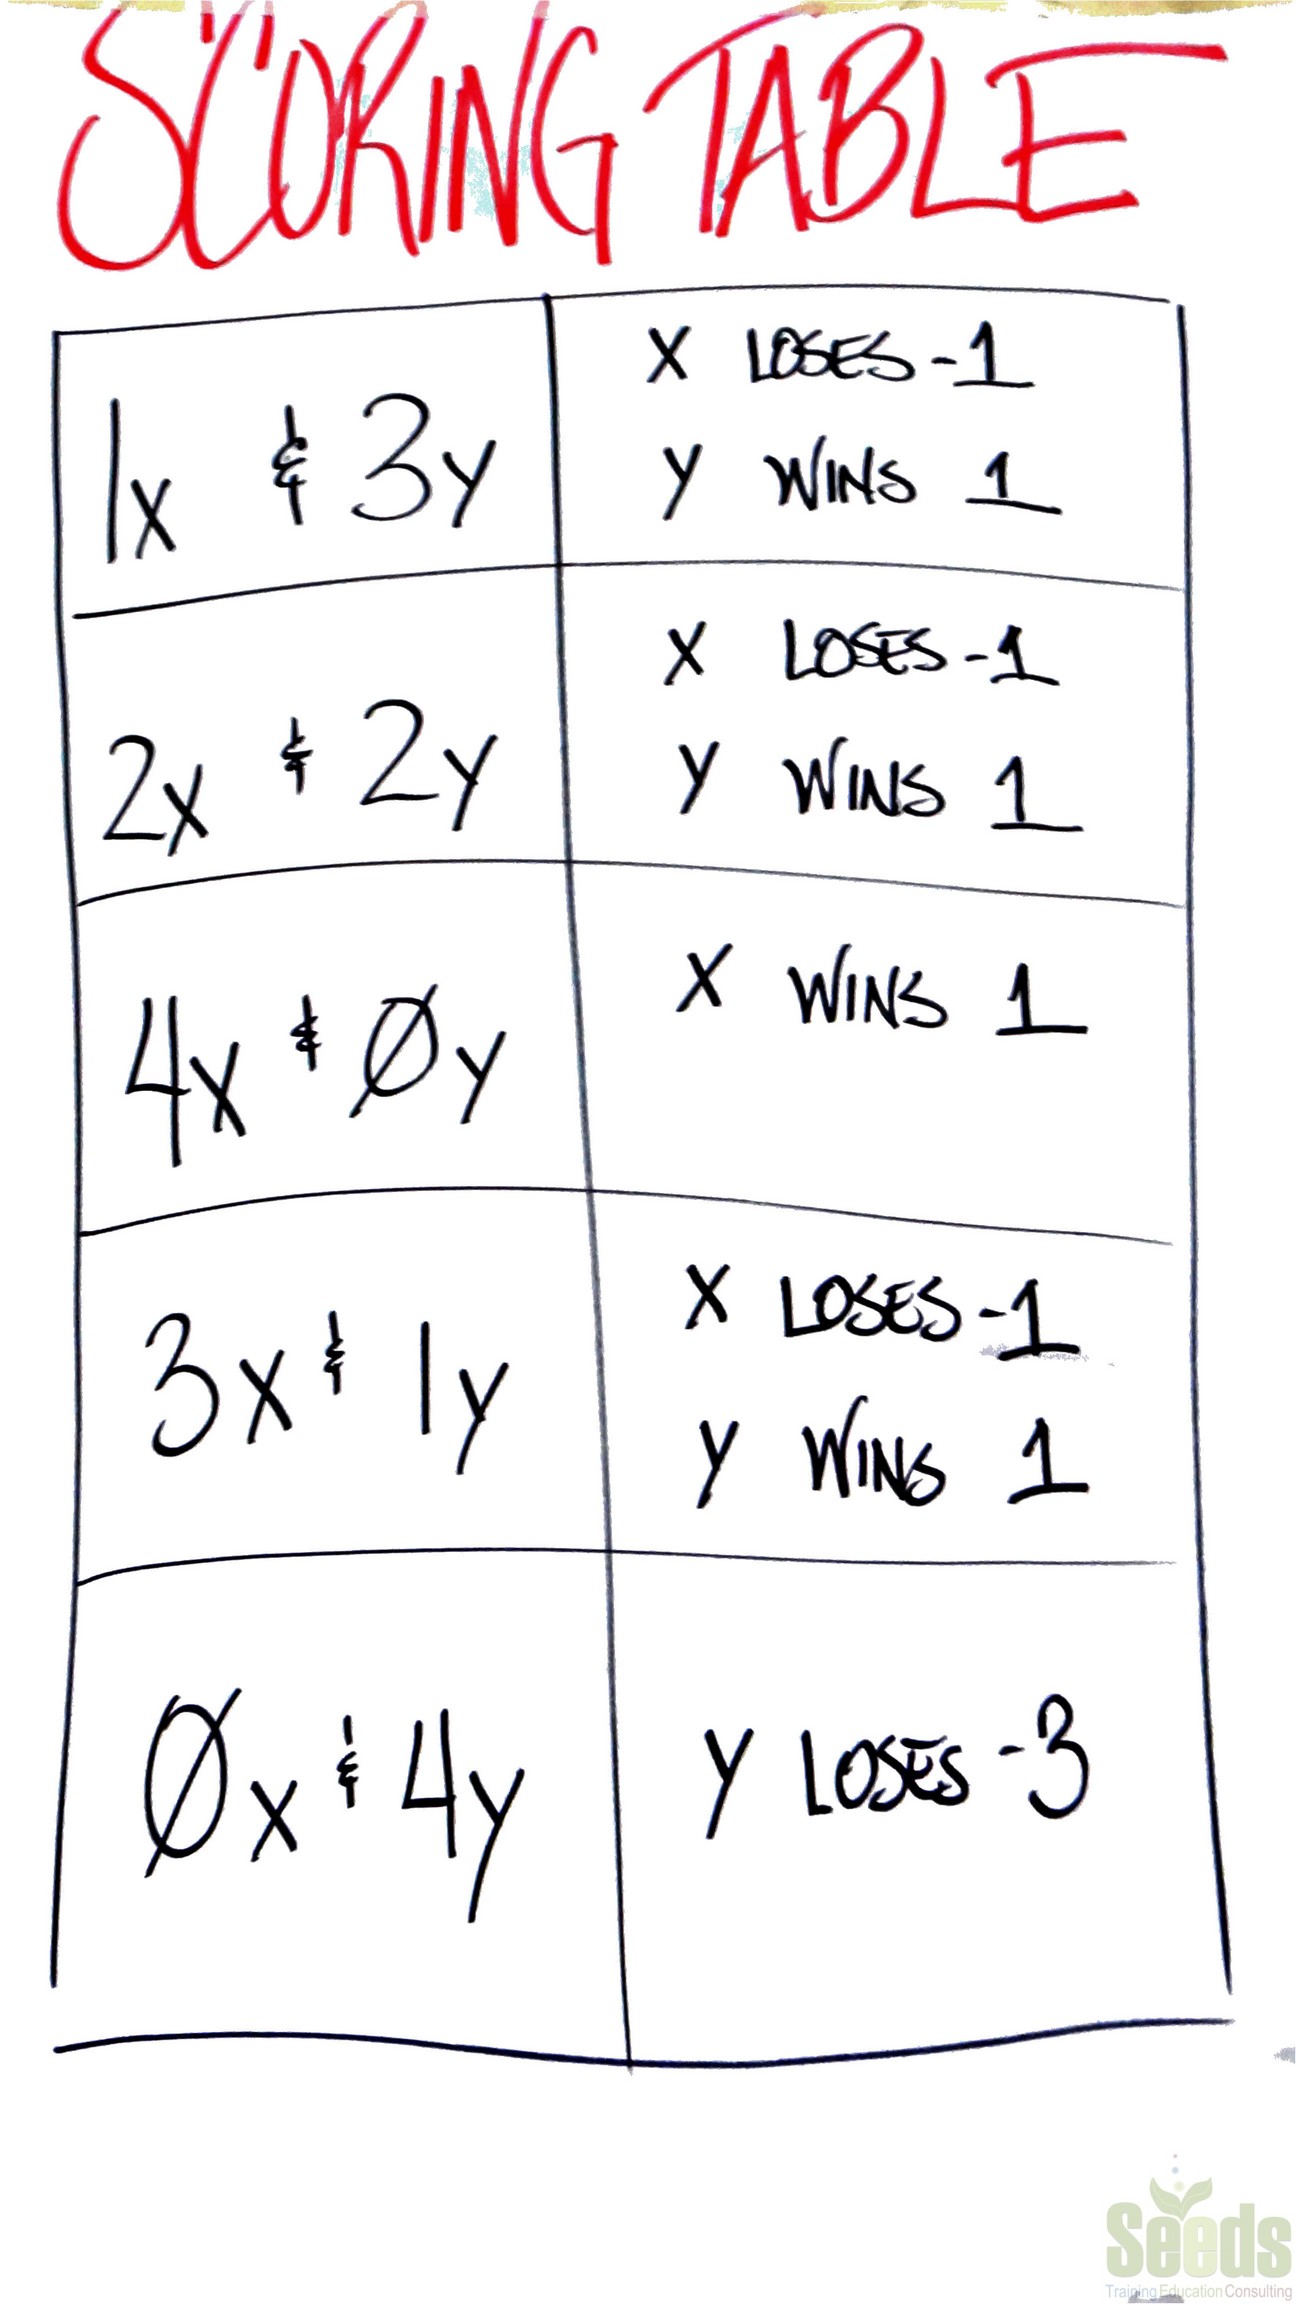 SCORING TABLE
1x & 3y
X LOSES -1
Y WINS 1
2x & 2y
X LOSES -1
Y WINS 1
4x & Øy
X WINS 1
3x & 1y
X LOSES -1
Y WINS 1
Øx & 4y
Y LOSES -3
Seeds
Training Education Consulting